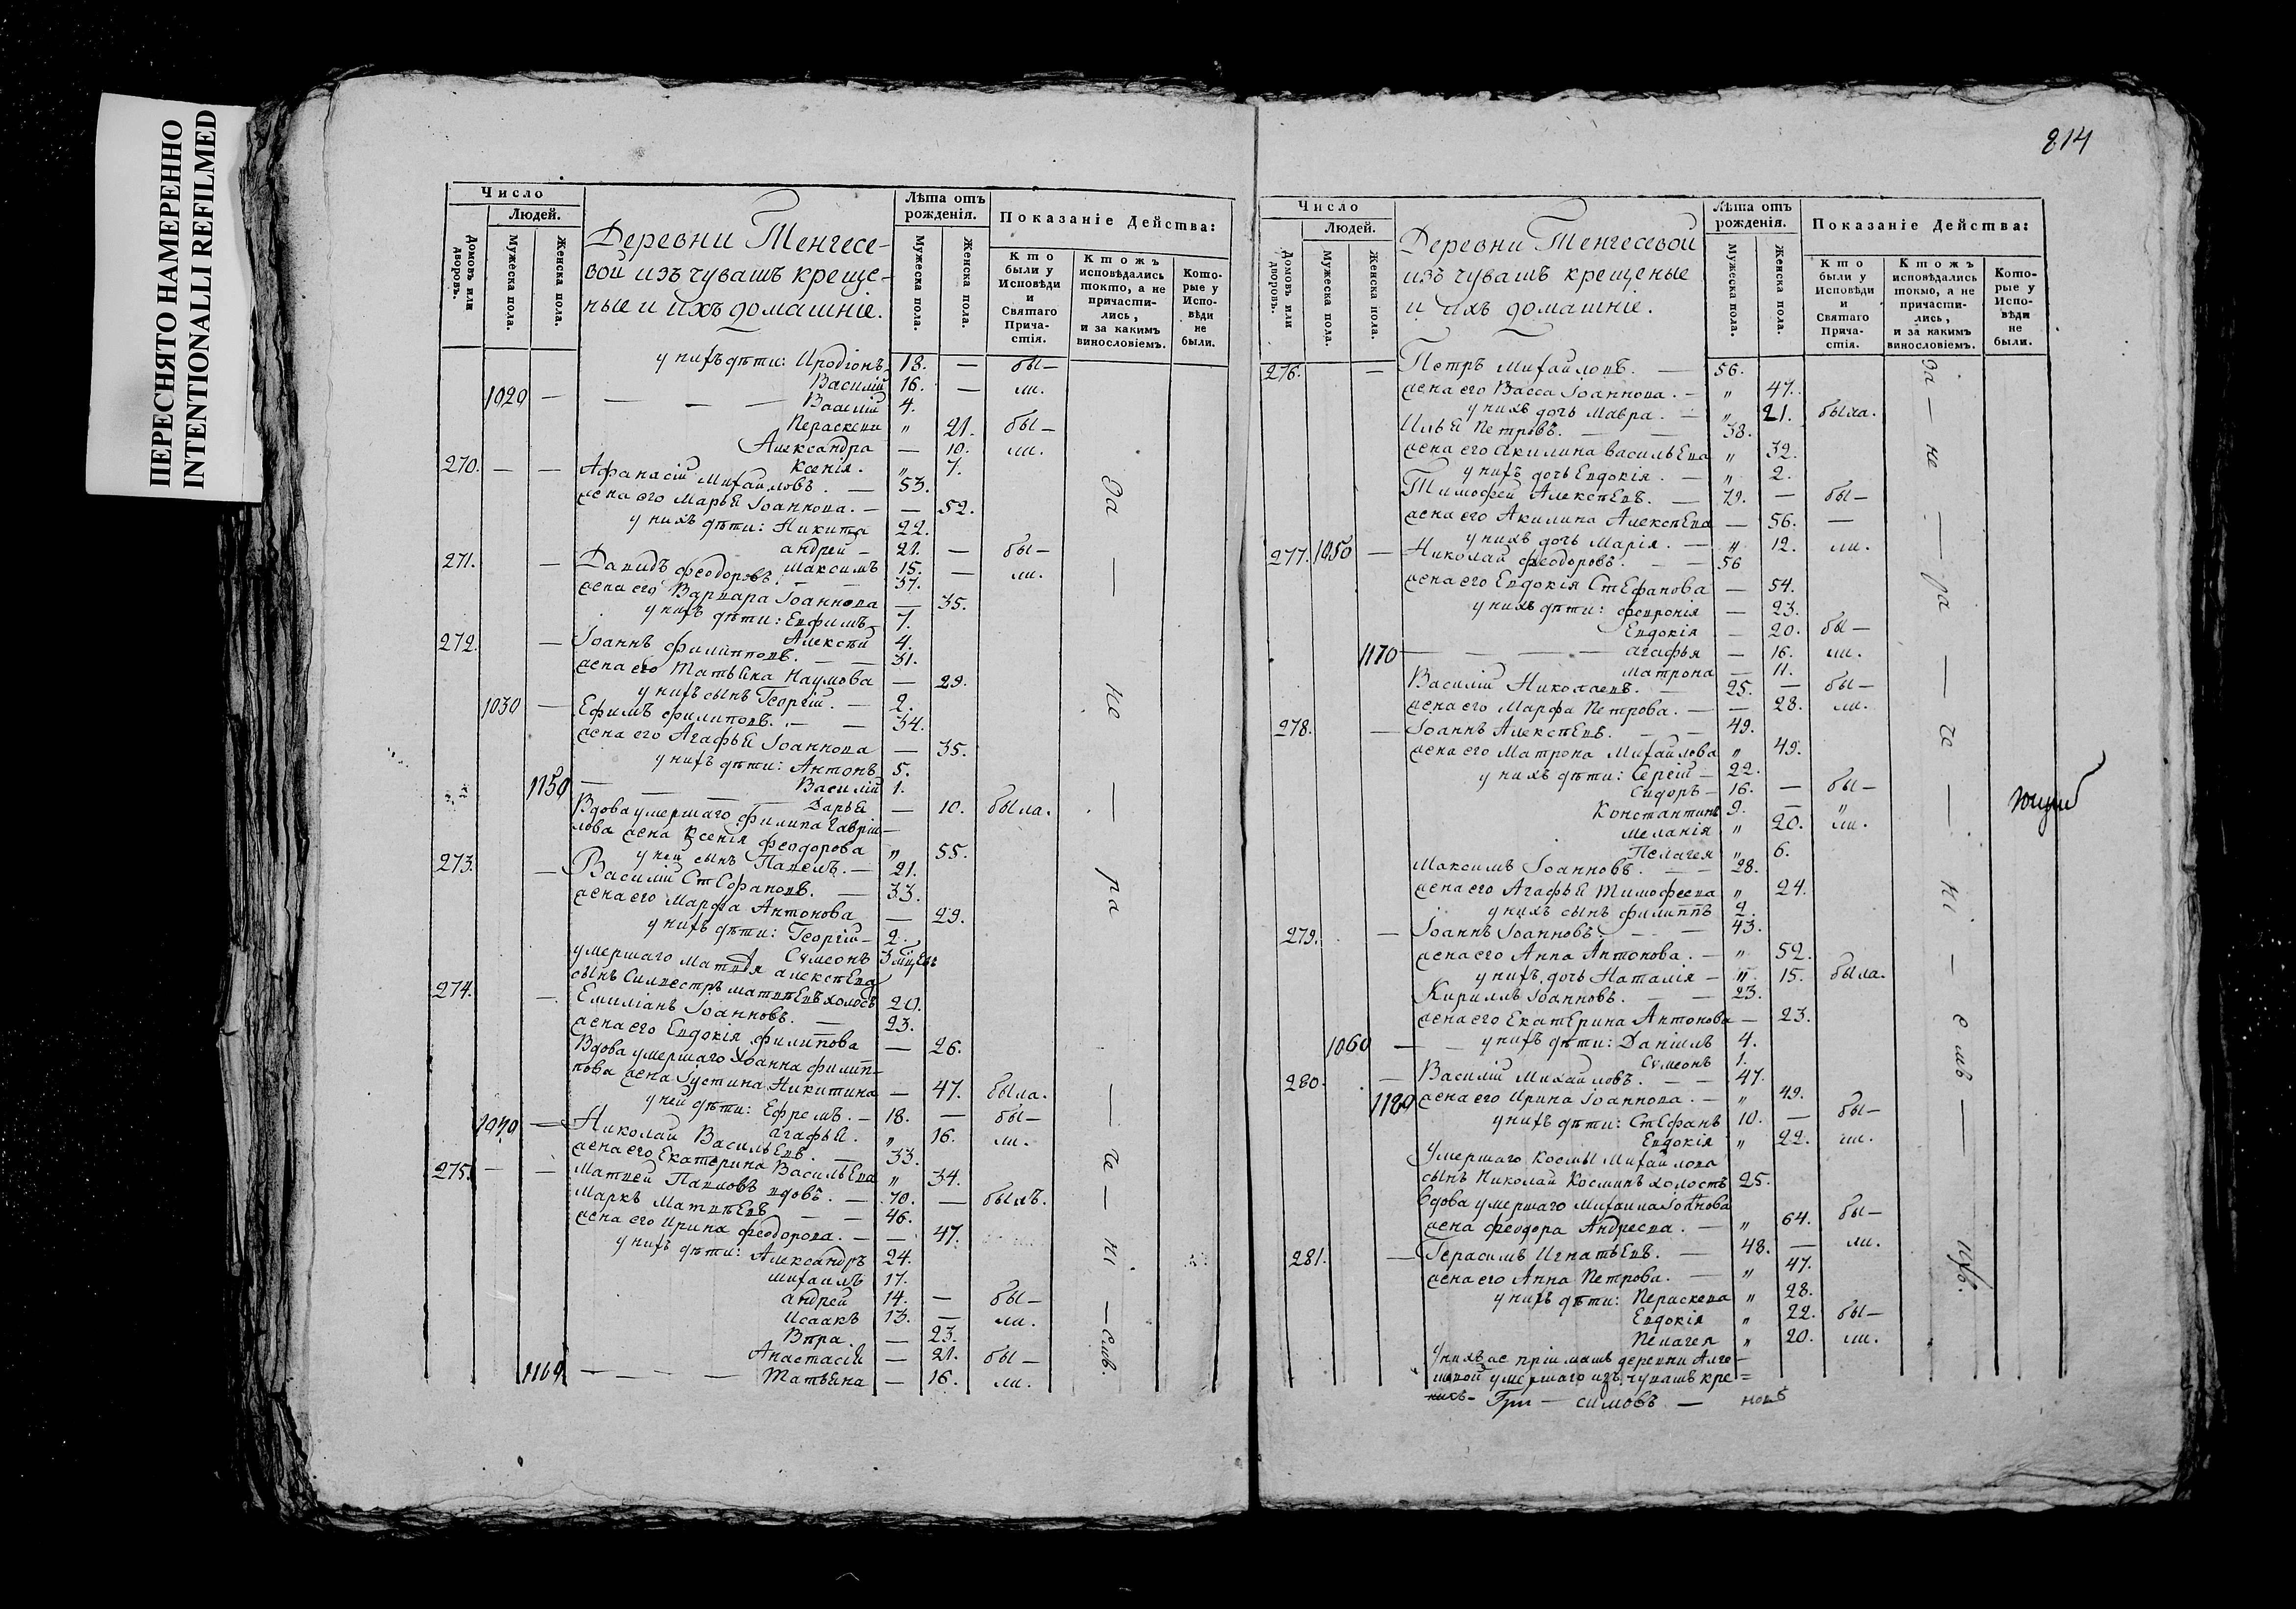 ПЕРЕСНЯТО НАМЕРЕННО
INTENTIONALLI REFILMED
814
Число
Людей.
Домовъ или дворовъ.
Мужеска пола.
Женска пола.
Деревни Тенгесе-
вой изъ чувашъ креще-
ные и ихъ домашніе.
Лѣта отъ рожденія.
Мужеска пола.
Женска пола.
Показаніе Действа:
Кто были у Исповѣди и Святаго Прича-стія.
Ктожъ исповѣдались токто, а не причасти-лись, и за какимъ винословіемъ.
Кото-рые у Испо-вѣди не были.
у нихъ дѣти: Иродіонъ 18. — бы—
Василій 16. — ли.
1020 — — — — Василій 4.
Параскеви „ 21. бы—
Александра — 10. ли.
Ксенія. „ 7.
270. — — Афанасій Михайловъ. — 53.
жена его Марья Іоаннова. — — 52.
у нихъ дѣти: Никита 22.
андрей — 21. — бы—
Максимъ 15. — ли.
271. — Давидъ Феодоровъ. — — 37.
жена его Варвара Іоаннова — 35.
у нихъ дѣти: Евфимъ 7.
Алексѣй 4.
272. — Іоаннъ Филипповъ. — — 31.
жена его Татьяна Наумова — 29.
у нихъ сынъ Георгій. — 2.
1030 — Ефимъ Филиповъ. — — 34.
жена его Агафья Іоаннова — 35.
у нихъ дѣти: Антонъ 5.
1150 — — — — Василій 1.
Дарья — 10. была.
Вдова умершаго Филипа Гаврии—
лова жена Ксенія Феодорова „ 55.
у ней сынъ Павелъ. — 21.
273. — Василій Стефановъ. — 33.
жена его Марфа Антонова — 29.
у нихъ дѣти: Георгій — 2.
Сѵмеонъ 3 мѣцевъ
умершаго Матвея алексѣева
сынъ Силвестръ матвѣевъ холостъ 20.
274. — Емиліанъ Іоанновъ. — 23.
жена его Евдокія Филипова — 26.
Вдова умершаго Іоанна Филип-
пова жена Іустина Никитина — 47. была.
у ней дѣти: Ефремъ. — 18. — бы—
агафья. „ 16. ли.
1040 — Николай Васильевъ. — 33.
жена его Екатерина Васильева „ 34.
275. — — Матвей Павловъ вдовъ. — 70. — былъ.
Маркъ Матвѣевъ — — 46.
жена его Ирина Феодорова. — — 47.
у нихъ дѣти: Александръ 24.
Михаилъ 17.
андрей 14. — бы—
Исаакъ 13. — ли.
Вѣра — 23.
Анастасія — 21. бы—
1160 — — — — Татьяна — 16. ли.
За — не — ра — че — ні — емъ.
Число
Людей.
Домовъ или дворовъ.
Мужеска пола.
Женска пола.
Деревни Тенгесевой
изъ чувашъ крещеные
и ихъ домашніе.
Лѣта отъ рожденія.
Мужеска пола.
Женска пола.
Показаніе Действа:
Кто были у Исповѣди и Святаго Прича-стія.
Ктожъ исповѣдались токмо, а не причасти-лись, и за какимъ винословіемъ.
Кото-рые у Испо-вѣди не были.
276. — Петръ Михайловъ. — 56.
жена его Васса Іоаннова. — „ 47.
у нихъ дочь Мавра. — „ 21. была.
Илья Петровъ. — — 38.
жена его Акилина васильева „ 32.
у нихъ дочь Евдокія. — „ 2.
Тимофей Алексѣевъ. — 72. — бы—
жена его Акилина Алексѣева — 56. —
у нихъ дочь Марія. — „ 12. ли.
277. 1050 — Николай Феодоровъ. — — 56
жена его Евдокія Стефанова — 54.
у нихъ дѣти: Февронія — 23.
Евдокія — 20. бы—
1170 — — — — агафья — 16. ли.
матрона — 11.
Василій Николаевъ. — 25. — бы—
жена его Марфа Петрова. — — 28. ли.
278. — Іоаннъ Алексѣевъ. — — 49.
жена его Матрона Михайлова „ 49.
у нихъ дѣти: Сергій — 22.
Сидоръ — 16. — бы—
Константинъ 9. — „
Меланія „ 20. ли.
Пелагея „ 6.
Максимъ Іоанновъ. — — 28.
жена его Агафья Тимофеева „ 24.
у нихъ сынъ Филиппъ 2.
279. — Іоаннъ Іоанновъ. — — 43.
жена его Анна Антонова. — „ 52.
у нихъ дочь Наталія — „ 15. была.
Кириллъ Іоанновъ. — — 23.
жена его Екатерина Антонова — 23.
1060 — — у нихъ дѣти: Даніилъ 4.
Сѵмеонъ 1.
280. — Василій Михайловъ. — — 47.
1180 жена его Ирина Іоаннова. — „ 49.
у нихъ дѣти: Стефанъ 10. — бы—
Евдокія „ 22. ли.
Умершаго Космы Михайлова
сынъ Николай Косминъ холостъ 25.
вдова умершаго Михаила Іоаннова
жена Феодора Андреева. — „ 64. бы—
281. — Герасимъ Игнатьевъ. — 48. — ли.
жена его Анна Петрова. — „ 47.
у нихъ дѣти: Параскева „ 28.
Евдокія „ 22. бы—
Пелагея „ 20. ли.
у нихъ же пріимашъ деревни
умершаго изъ чувашъ кре=
За — не — ра — че — ні — емъ